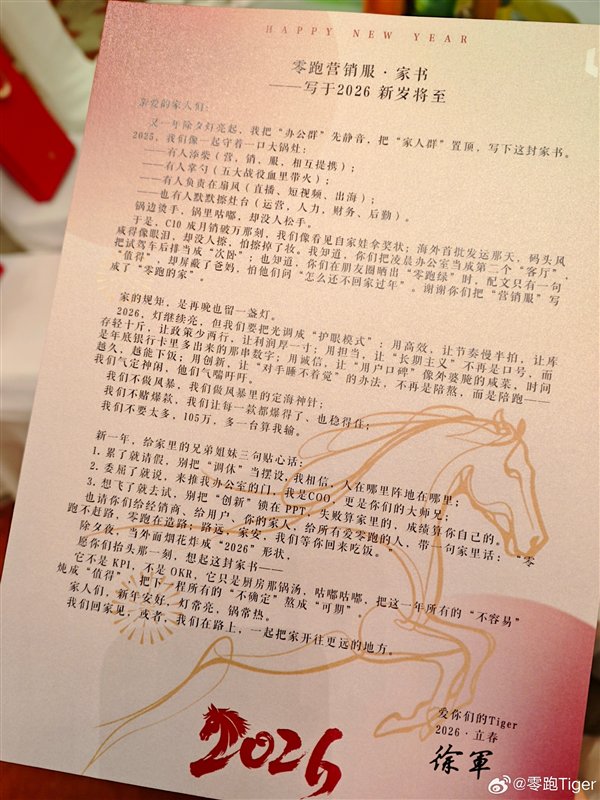 HAPPY NEW YEAR
零跑营销服·家书
——写于2026 新岁将至
亲爱的家人们：
又一年除夕灯亮起，我把“办公群”先静音，把“家人群”置顶，写下这封家书。
2025，我们像一起守着一口大锅灶：
——有人添柴（营，销，服，相互提携）；
——有人掌勺（五大战役血里带火）；
——有人负责在扇风（直播、短视频、出海）；
——也有人默默擦灶台（运营，人力，财务、后勤）。
锅边烫手，锅里咕嘟，却没人松手。
于是，C10 成月销破万那刻，我们像看见自家娃拿奖状；海外首批发运那天，码头风
咸得像眼泪，却没人擦，怕擦掉了妆。我知道，你们把凌晨办公室当成第二个“客厅”，
把试驾车后排当成“次卧”；也知道，你们在朋友圈晒出“零跑绿”时，配文只有一句
“值得”，却屏蔽了爸妈，怕他们问“怎么还不回家过年”。谢谢你们把“营销服”写
成了“零跑的家”。
家的规矩，是再晚也留一盏灯。
2026，灯继续亮，但我们要把光调成“护眼模式”：用高效，让节奏慢半拍，让库
存轻十斤，让政策少两行，让利润厚一寸；用担当，让“长期主义”不再是口号，而
是年底银行卡里多出来的那串数字；用诚信，让“用户口碑”像外婆腌的咸菜，时间
越久，越能下饭；用创新，让“对手睡不着觉”的办法，不再是陪熬，而是陪跑——
我们气定神闲，他们气喘吁吁。
我们不做风暴，我们做风暴里的定海神针；
我们不赌爆款，我们让每一款都爆得了、也稳得住；
我们不要太多，105万，多一台算我输。
新一年，给家里的兄弟姐妹三句贴心话：
1. 累了就请假，别把“调休”当摆设，我相信，人在哪里阵地在哪里；
2. 委屈了就说，来推我办公室的门，我是COO，更是你们的大师兄；
3. 想飞了就去试，别把“创新”锁在 PPT，失败算家里的，成绩算你自己的。
也请你们给经销商、给用户，你的家人，给所有爱零跑的人，带一句家里话：“零
跑不赶路，零跑在造路；路远，家安，我们等你回来吃饭。”
除夕夜，当外面烟花炸成“2026”形状，
愿你们抬头那一刻，想起这封家书——
它不是 KPI，不是 OKR，它只是厨房那锅汤，咕嘟咕嘟，把这一年所有的“不容易”
炖成“值得”，把下一程所有的“不确定”熬成“可期”。
家人们，新年安好，灯常亮，锅常热。
我们回家见，或者，我们在路上，一起把家开往更远的地方。
爱你们的Tiger
2026·立春
徐軍
2026
@零跑Tiger